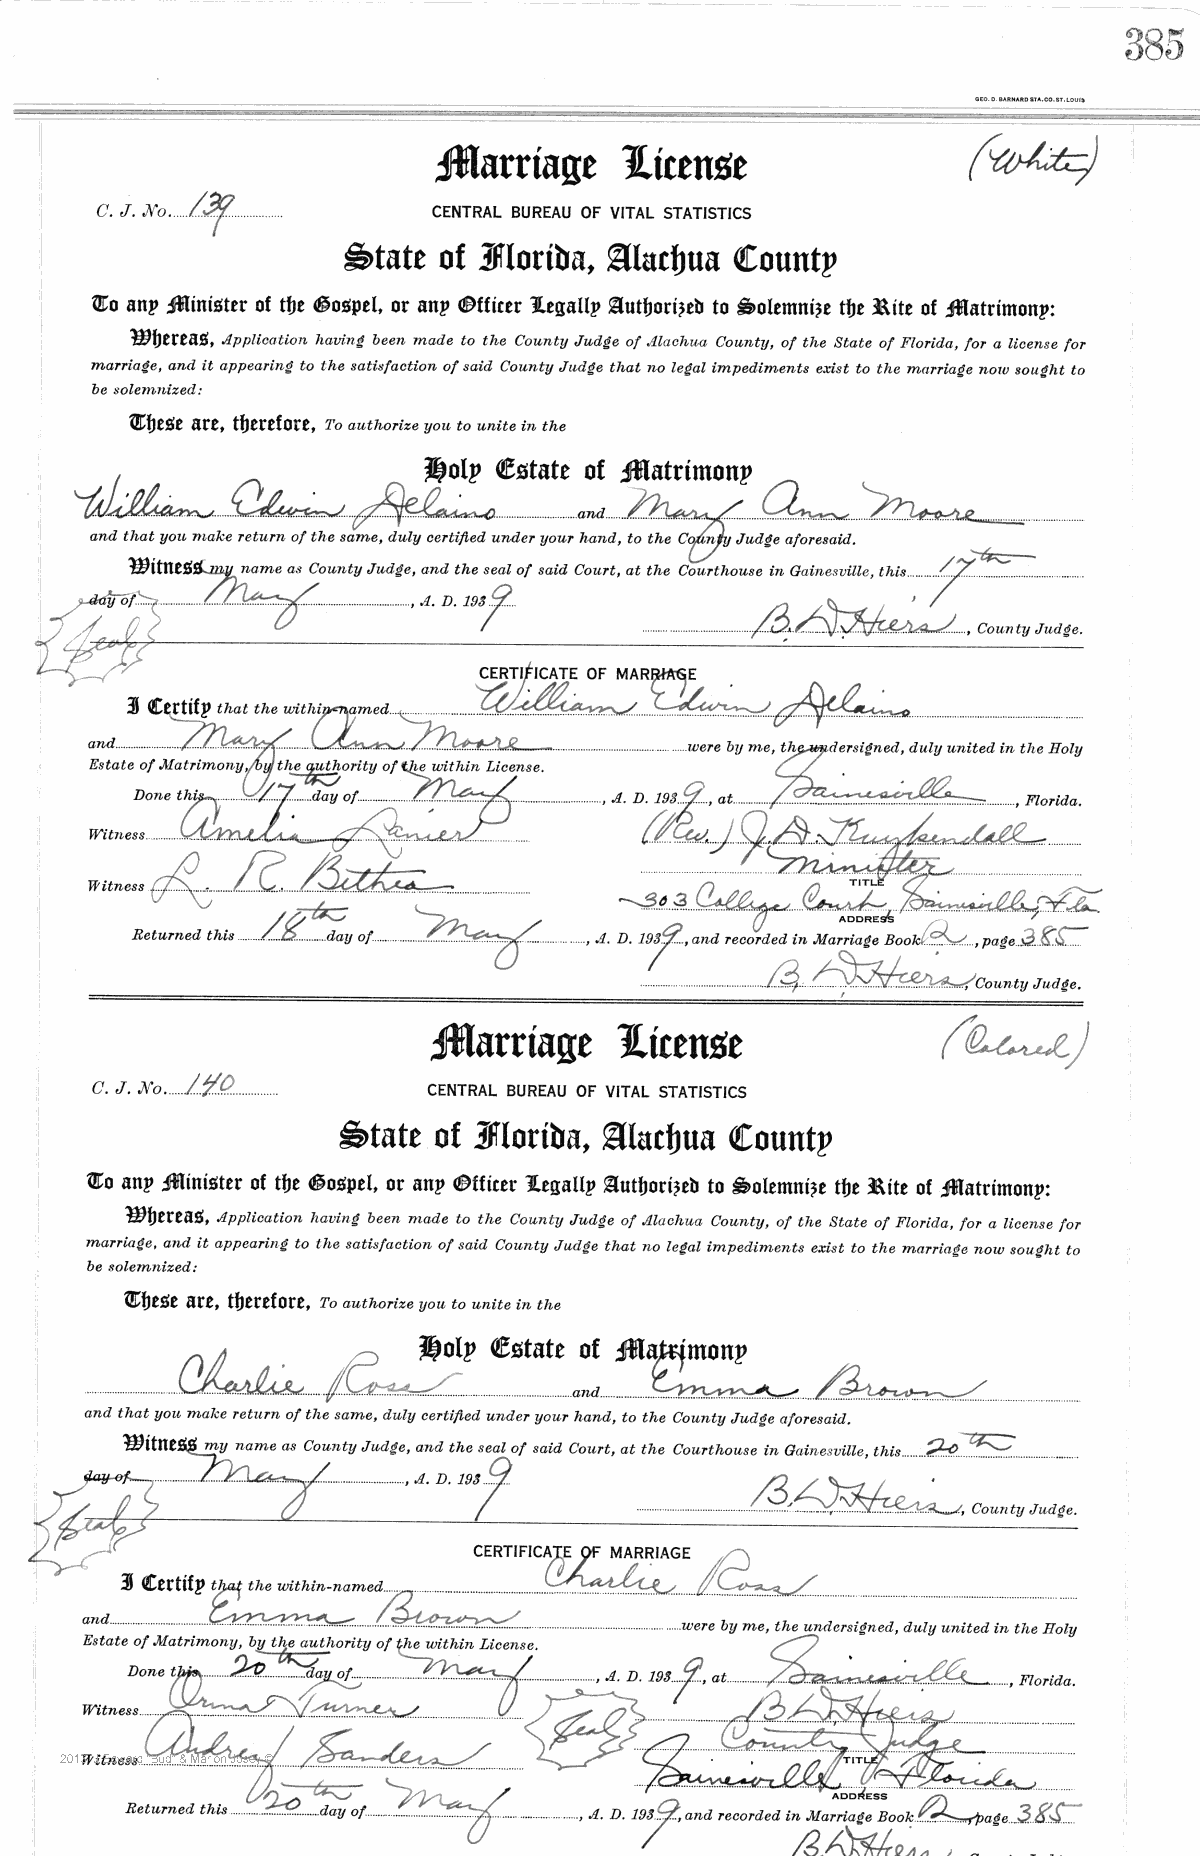 385
GEO. D. BARNARD STA. CO. ST. LOUIS
Marriage License (White)
C. J. No. 139 CENTRAL BUREAU OF VITAL STATISTICS
State of Florida, Alachua County
To any Minister of the Gospel, or any Officer Legally Authorized to Solemnize the Rite of Matrimony:
Whereas, Application having been made to the County Judge of Alachua County, of the State of Florida, for a license for
marriage, and it appearing to the satisfaction of said County Judge that no legal impediments exist to the marriage now sought to
be solemnized:
These are, therefore, To authorize you to unite in the
Holy Estate of Matrimony
William Edwin Delaino and Mary Ann Moore
and that you make return of the same, duly certified under your hand, to the County Judge aforesaid.
Witness my name as County Judge, and the seal of said Court, at the Courthouse in Gainesville, this 17th
day of May, A. D. 1939
Seal B. D. Hiers, County Judge.
CERTIFICATE OF MARRIAGE
I Certify that the within-named William Edwin Delaino
and Mary Ann Moore were by me, the undersigned, duly united in the Holy
Estate of Matrimony, by the authority of the within License.
Done this 17th day of May, A. D. 1939, at Gainesville, Florida.
Witness Amelia Lanier (Rev.) J. D. Kuykendall
Minister
Witness L. R. Bethea TITLE
303 College Court, Gainesville, Fla.
ADDRESS
Returned this 18th day of May, A. D. 1939, and recorded in Marriage Book R, page 385
B. D. Hiers, County Judge.
Marriage License (Colored)
C. J. No. 140 CENTRAL BUREAU OF VITAL STATISTICS
State of Florida, Alachua County
To any Minister of the Gospel, or any Officer Legally Authorized to Solemnize the Rite of Matrimony:
Whereas, Application having been made to the County Judge of Alachua County, of the State of Florida, for a license for
marriage, and it appearing to the satisfaction of said County Judge that no legal impediments exist to the marriage now sought to
be solemnized:
These are, therefore, To authorize you to unite in the
Holy Estate of Matrimony
Charlie Ross and Emma Brown
and that you make return of the same, duly certified under your hand, to the County Judge aforesaid.
Witness my name as County Judge, and the seal of said Court, at the Courthouse in Gainesville, this 20th
day of May, A. D. 1939
Seal B. D. Hiers, County Judge.
CERTIFICATE OF MARRIAGE
I Certify that the within-named Charlie Ross
and Emma Brown were by me, the undersigned, duly united in the Holy
Estate of Matrimony, by the authority of the within License.
Done this 20th day of May, A. D. 1939, at Gainesville, Florida.
Witness Orma Turner Seal B. D. Hiers
County Judge
Witness Audrey Sanders TITLE
Gainesville, Florida
ADDRESS
Returned this 20th day of May, A. D. 1939, and recorded in Marriage Book R, page 385
B. D. Hiers, County Judge.